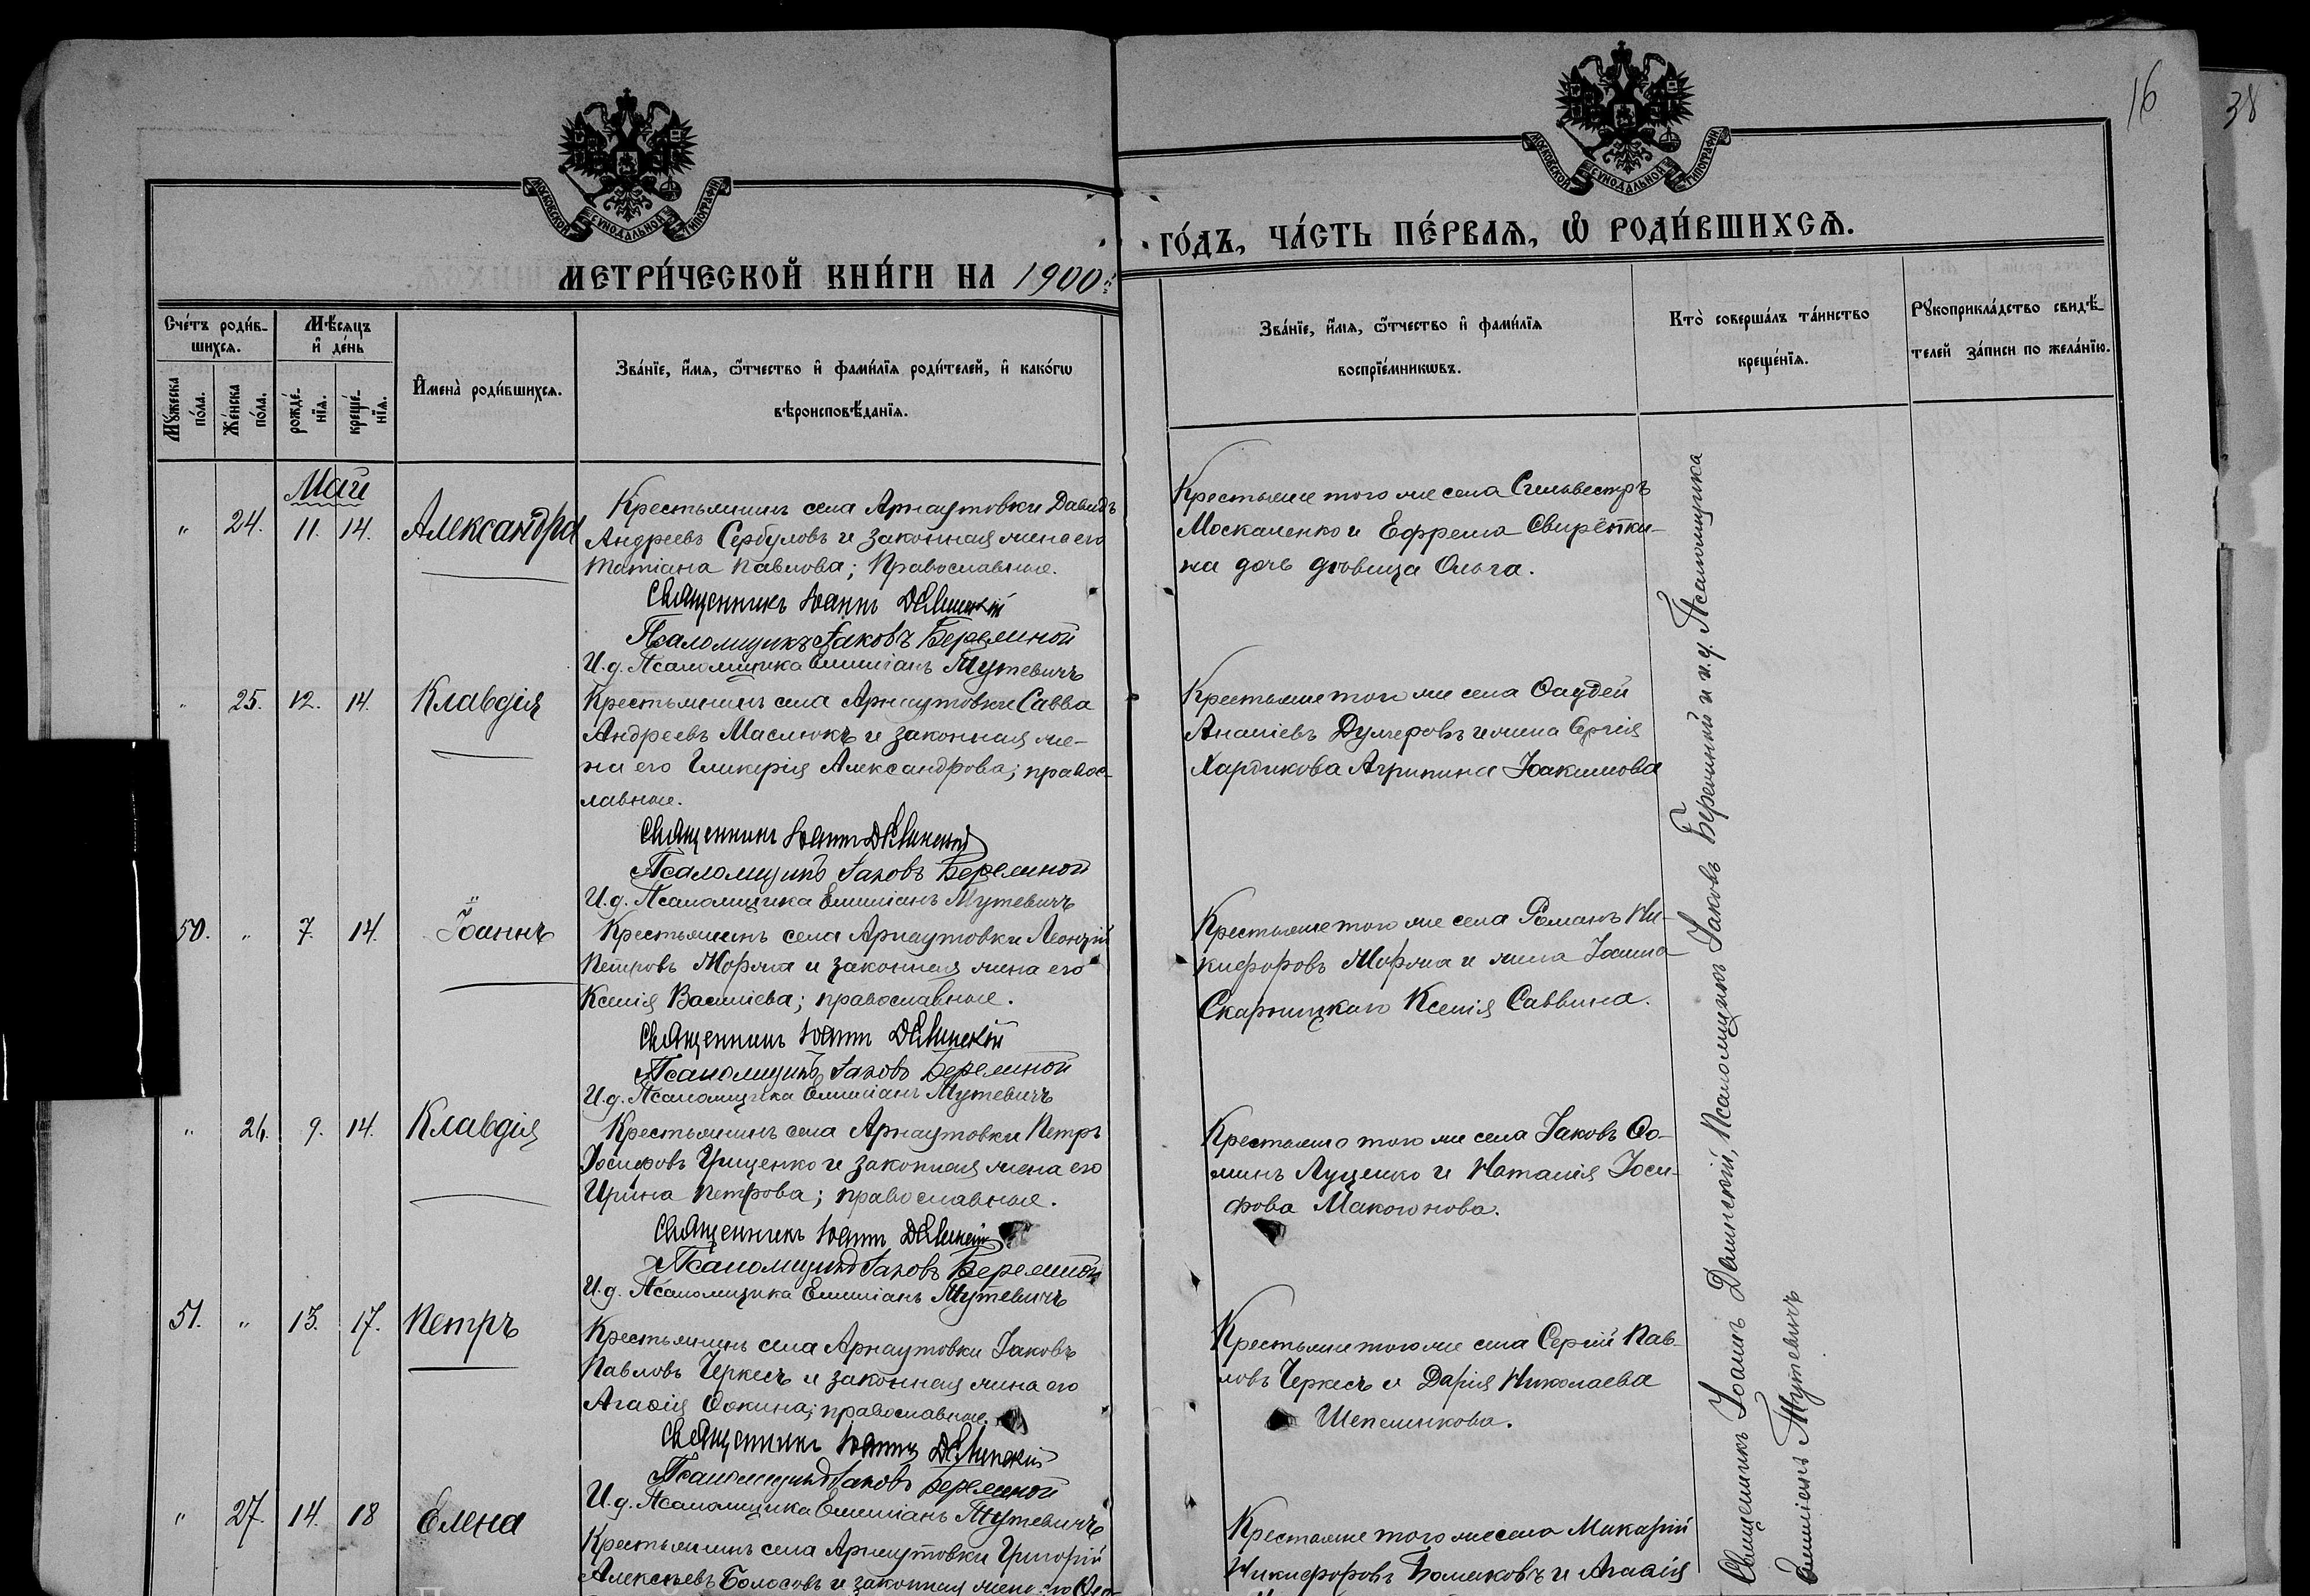 16
38
МОСКОВСКОЙ СУНОДАЛЬНОЙ ТИПОГРАФІИ
МОСКОВСКОЙ СУНОДАЛЬНОЙ ТИПОГРАФІИ
МЕТРИ́ЧЕСКОЙ КНИ́ГИ НА 1900
ГО́ДЪ, ЧА́СТЬ ПЕ́РВАѦ, Ѡ РОДИ́ВШИХСѦ.
Сче́тъ роди́в-
шихсѧ.
Мѣ́сѧцъ
и҆ де́нь
Мꙋ́жеска по́ла.
Же́нска по́ла.
рожде́-
нїѧ.
креще́-
нїѧ.
И҆мена̀ роди́вшихсѧ.
Зва́нїе, и҆́мѧ, ѻ҆́тчество и҆ фами́лїѧ роди́телей, и҆ како́гѡ
вѣроисповѣ́данїѧ.
Зва́нїе, и҆́мѧ, ѻ҆́тчество и҆ фами́лїѧ
воспрїе́мникѡвъ.
Кто̀ соверша́лъ та́инство
креще́нїѧ.
Рꙋкоприкла́дство свидѣ́-
телей за́писи по жела́нїю.
Май
" 24. 11. 14. Александра
Крестьянинъ села Арнаутовки Давидъ
Андреевъ Сербуловъ и законная жена его
Татіана Павлова; Православные.
Священникъ Іоаннъ Делинскій
Псаломщикъ Іаковъ Береминой
И.д. Псаломщика Емиліанъ Мутевичъ
Крестьяне того же села Сильвестръ
Москаленко и Ефрема Свирётки-
на дочь дѣвица Ольга.
" 25. 12. 14. Клавдія
Крестьянинъ села Арнаутовки Савва
Андреевъ Маслюкъ и законная же-
на его Гликерія Александрова; правос-
лавные.
Священникъ Іоаннъ Делинскій
Псаломщикъ Іаковъ Береминой
И.д. Псаломщика Емиліанъ Мутевичъ
Крестьяне того же села Ѳаддей
Ананіевъ Дулгеровъ и жена Сергія
Хардикова Агрипина Іоакимова
50. " 7. 14. Іоаннъ
Крестьянинъ села Арнаутовки Леонтій
Петровъ Моржа и законная жена его
Ксенія Василіева; православные.
Священникъ Іоаннъ Делинскій
Псаломщикъ Іаковъ Береминой
И.д. Псаломщика Емиліанъ Мутевичъ
Крестьяне того же села Романъ Ни-
кифоровъ Моржа и жена Іоанна
Скарницкаго Ксенія Саввина.
" 26. 9. 14. Клавдія
Крестьянинъ села Арнаутовки Петръ
Іосифовъ Грищенко и законная жена его
Ирина Петрова; православные.
Священникъ Іоаннъ Делинскій
Псаломщикъ Іаковъ Береминой
И.д. Псаломщика Емиліанъ Мутевичъ
Крестьяне того же села Іаковъ Ѳо-
минъ Луценко и Наталія Іоси-
фова Макогонова.
51. " 13. 17. Петръ
Крестьянинъ села Арнаутовки Іаковъ
Павловъ Черкесъ и законная жена его
Агафія Ѳокина; православные.
Священникъ Іоаннъ Делинскій
Псаломщикъ Іаковъ Береминой
И.д. Псаломщика Емиліанъ Мутевичъ
Крестьяне того же села Сергій Пав-
ловъ Черкесъ и Дарія Николаева
Шепелникова.
" 27. 14. 18 Елена
Крестьянинъ села Арнаутовки Григорій
Алексѣевъ Болосовъ и законная жена его
Крестьяне того же села Макарій
Никифоровъ и Агафія
Священникъ Іоаннъ Делинскій, Псаломщикъ Іаковъ Береминой и и.д. Псаломщика
Емиліанъ Мутевичъ